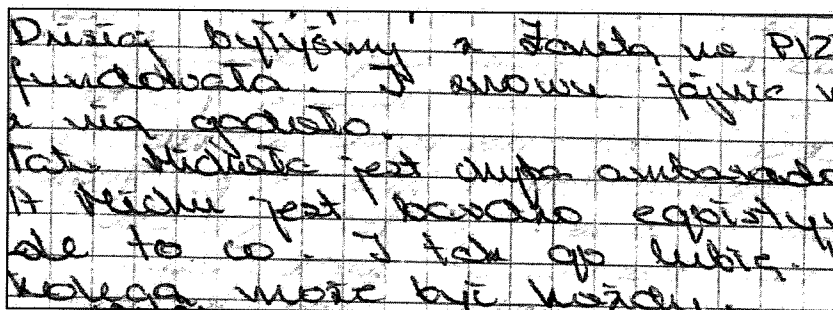 Dzisiaj byłyśmy z Żanetą na PIZ
fundowała. I znowu fajnie
z nią gadało.
Tata Michała jest chyba ambasado
A Michu jest bardzo egoisty
ale to co. I tak go lubię.
kolegą może być każdy.